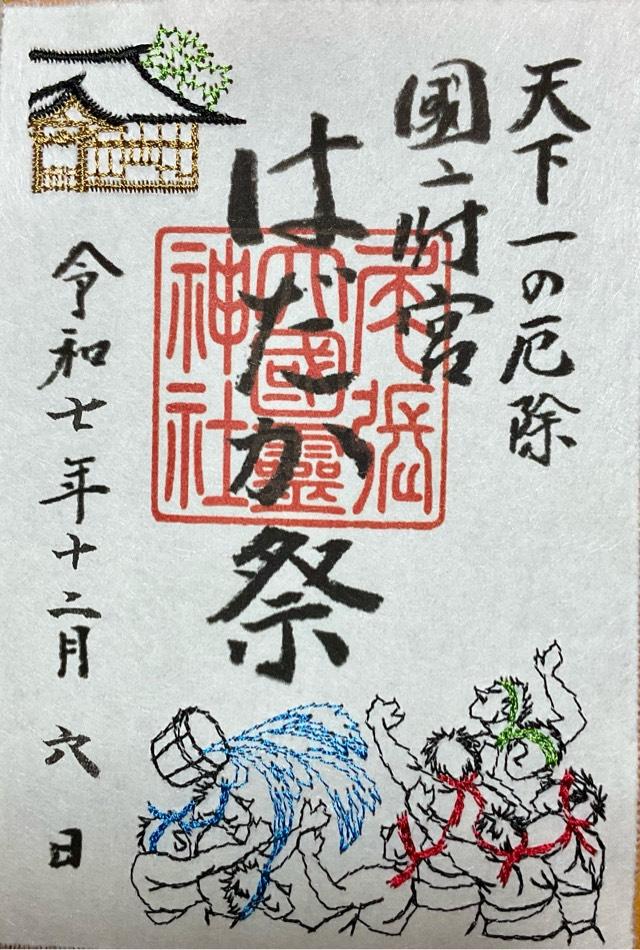 天下一の厄除
國府宮
はだか祭
尾張
大國靈
神社
令和七年十二月六日